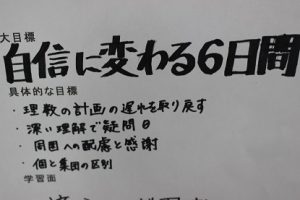 大目標
自信に変わる6日間
具体的な目標
・理数の計画の遅れを取り戻す
・深い理解で疑問0
・周囲への配慮と感謝
・個と集団の区別
学習面